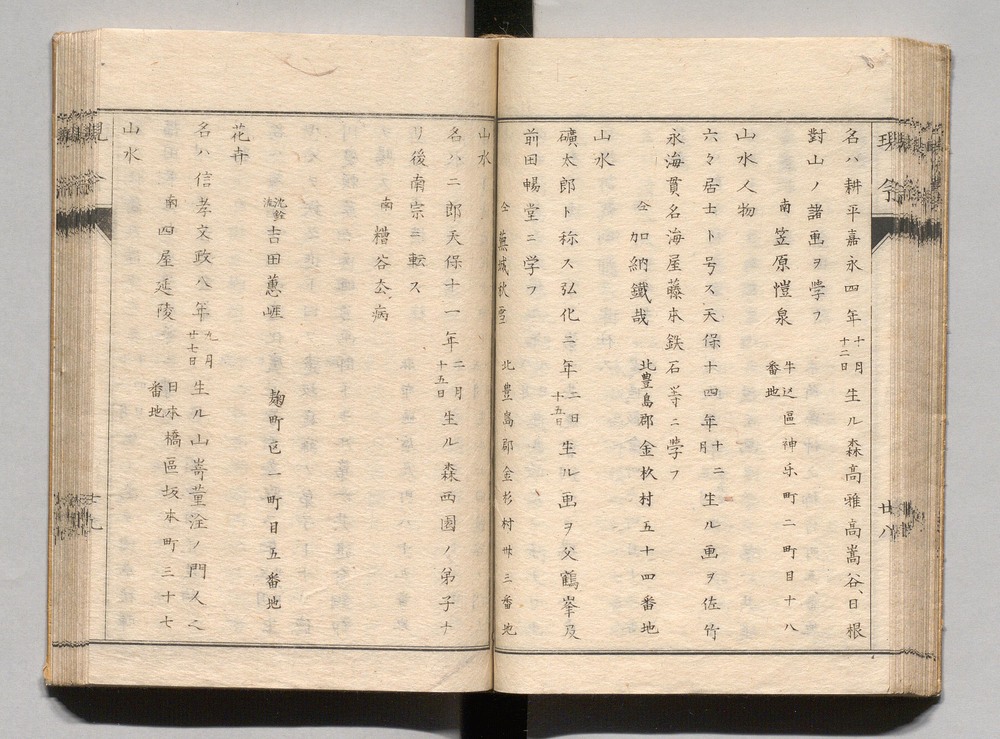 現今
廿八
名ハ耕平嘉永四年十月十二日生ル森高雅高嵩谷、日根
對山ノ諸画ヲ學フ
南 笠原愷泉 牛込區神乐町二町目十八番地
山水人物
六々居士ト号ス天保十四年十二月生ル画ヲ佐竹
永海貫名海屋藤本鉄石等ニ學フ
仝 加納鐵哉 北豊島郡金杉村五十四番地
山水
礦太郎ト称ス弘化二年二日十五日生ル画ヲ父鶴峯及
前田暢堂ニ学フ
仝 蕪城秋雪 北豊島郡金杉村卅三番地
山水
名ハ二郎天保十一年二月十五日生ル森西園ノ弟子ナ
リ後南宗ニ転ス
南 糟谷
沈銓流 吉田蕙崕 麹町区一町目五番地
花卉
名ハ信孝文政八年九月廿七日生ル山嵜董洤ノ門人之
南 四屋延陵 日本橋區坂本町三十七番地
山水
現今
廿九